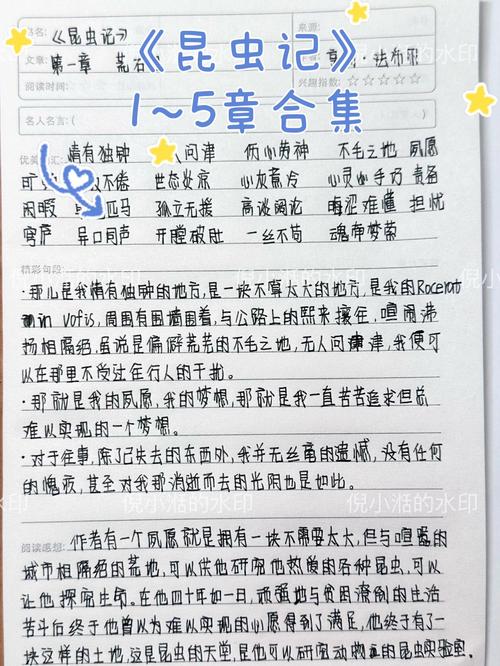 书名: 《昆虫记》
来源:
《昆虫记》
文章: 第一章 荒石
·法布尔
阅读时间:
兴趣指数: ☆☆☆☆☆
1~5章合集
名人名言: (
优美词汇: 情有独钟 人问津 伤心劳神 不毛之地 夙愿
不倦 世态炎凉 心灰意冷 心灵手巧 责备
闲暇 匹马 孤立无援 高谈阔论 晦涩难懂 担忧
穹庐 异口同声 开膛破肚 一丝不苟 魂牵梦萦
精彩句段:
·那儿是我情有独钟的地方,是一块不算太大的地方,是我的Rocerat
min vofis,周围有围墙围着,与公路上的熙来攘往,喧闹沸
扬相隔绝,虽说是偏僻荒芜的不毛之地,无人问津津,我便可
以在那里不受过往行人的干扰。
·那就是我的夙愿,我的梦想,那就是我一直苦苦追求但总
难以实现的一个梦想。
·对于往事,除了已失去的东西外,我并无丝毫的遗憾,没有任何
的愧疚,甚至对我那消逝而去的光阴也是如此。
阅读感想: 作者有一个夙愿就是拥有一块不需要太大,但与喧嚣的
城市相隔绝的荒地,可以供他研究他热爱的各种昆虫,可以
让他探究生命。在他四十年如一日,顽强地与贫困潦倒的生活
苦斗后终于他曾以为难以实现的心愿得到了满足,他终于有了一
块这样的土地,这是昆虫的天堂,是他可以研究动物真的昆虫实验室。
倪小湉的水印